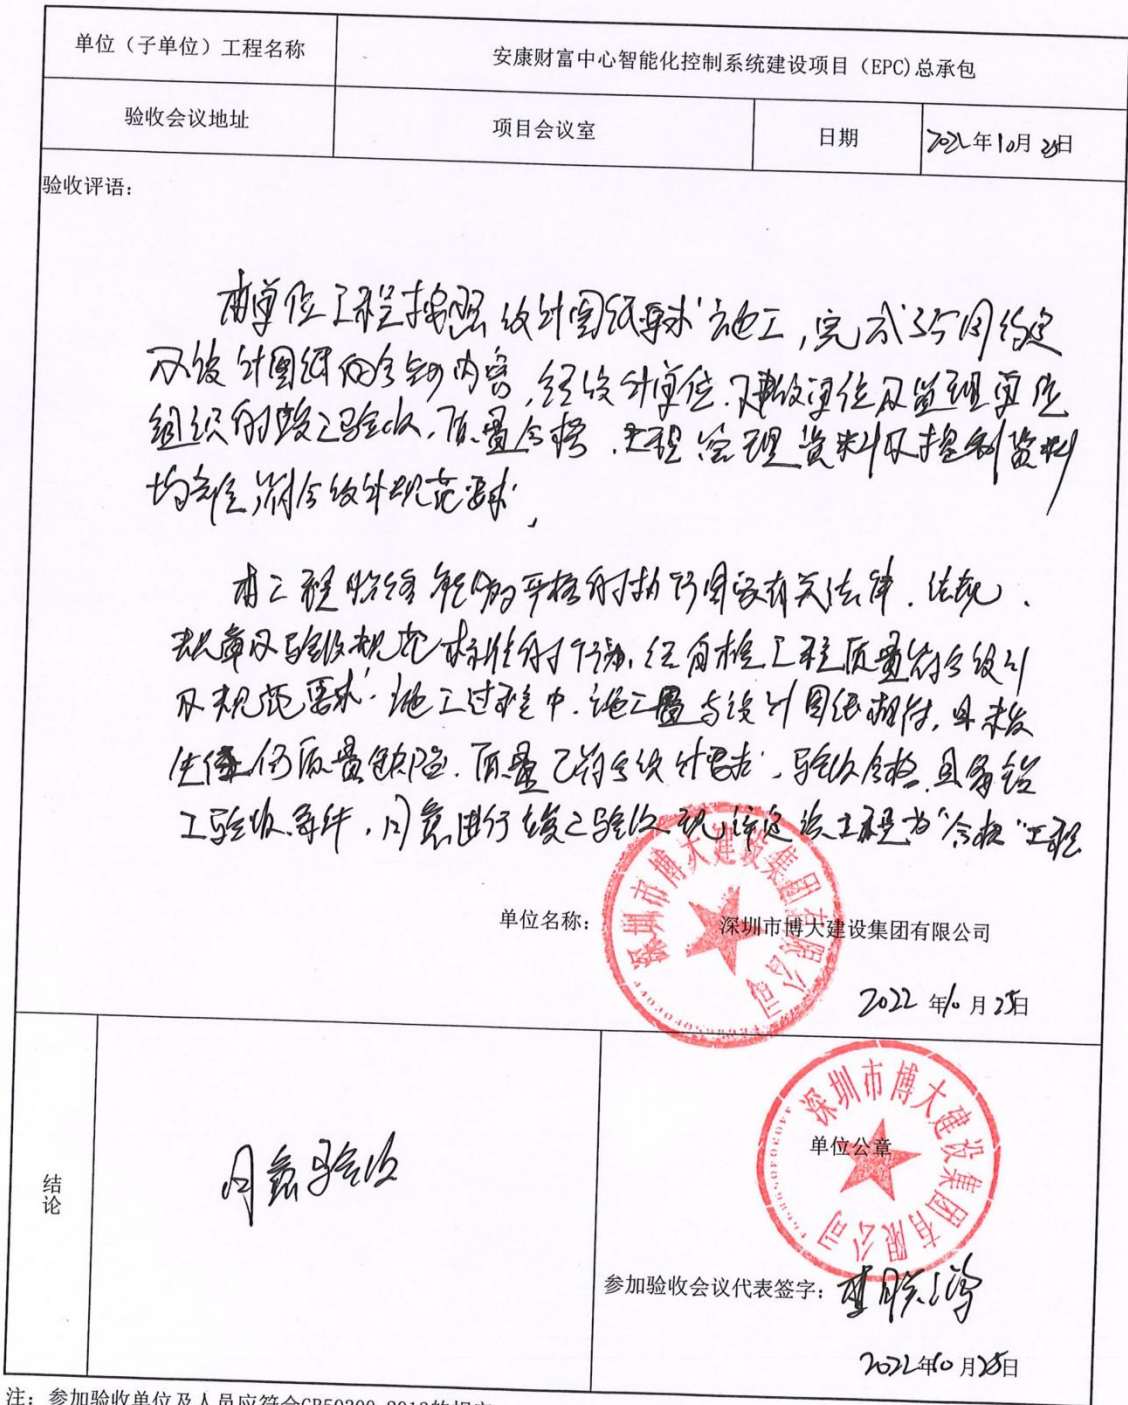 单位（子单位）工程名称 安康财富中心智能化控制系统建设项目（EPC)总承包
验收会议地址 项目会议室 日期 2022年10月25日
验收评语：
本单位工程按照设计图纸要求施工，完成了合同约定
及设计图纸的全部内容，经设计单位、建设单位及监理单位
组织的竣工验收，质量合格，工程管理资料及控制资料
均齐全，符合设计规范要求，
本工程始终能够严格的执行国家有关法律、法规、
规章及验收规范标准的行为，经自检工程质量符合设计
及规范要求。施工过程中，施工量与设计图纸相符，且未发
生任何质量缺陷，质量已符合设计要求，验收合格，具备竣
工验收条件，同意进行竣工验收，评定该工程为“合格”工程
单位名称： 深圳市博大建设集团有限公司
深圳市博大建设集团有限公司
2022年10月25日
结论
同意验收
单位公章
深圳市博大建设集团有限公司
参加验收会议代表签字：
2022年10月25日
注：参加验收单位及人员应符合GB50300-2013的规定